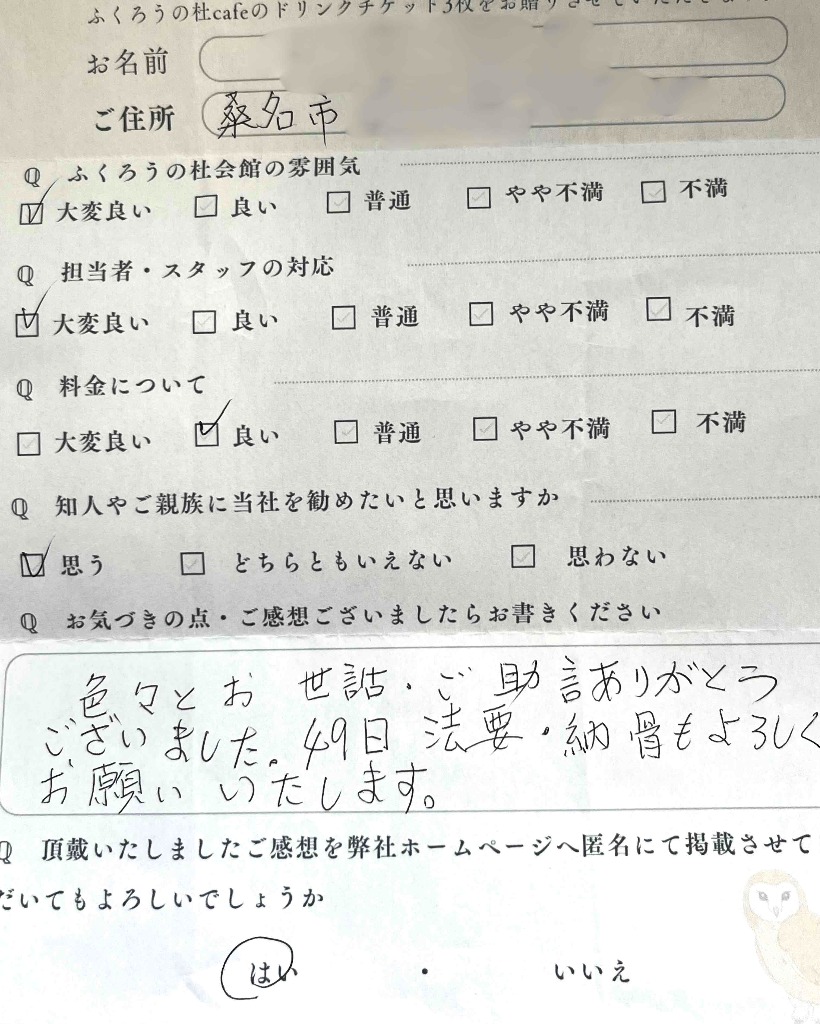 ふくろうの杜cafeのドリンクチケット3枚をお贈りさせていただきま
お名前
ご住所 桑名市
Q ふくろうの杜会館の雰囲気
大変良い 良い 普通 やや不満 不満
Q 担当者・スタッフの対応
大変良い 良い 普通 やや不満 不満
Q 料金について
大変良い 良い 普通 やや不満 不満
Q 知人やご親族に当社を勧めたいと思いますか
思う どちらともいえない 思わない
Q お気づきの点・ご感想ございましたらお書きください
色々とお世話・ご助言ありがとう
ございました。49日法要・納骨もよろしく
お願いいたします。
Q 頂戴いたしましたご感想を弊社ホームページへ匿名にて掲載させて
だいてもよろしいでしょうか
はい ・ いいえ